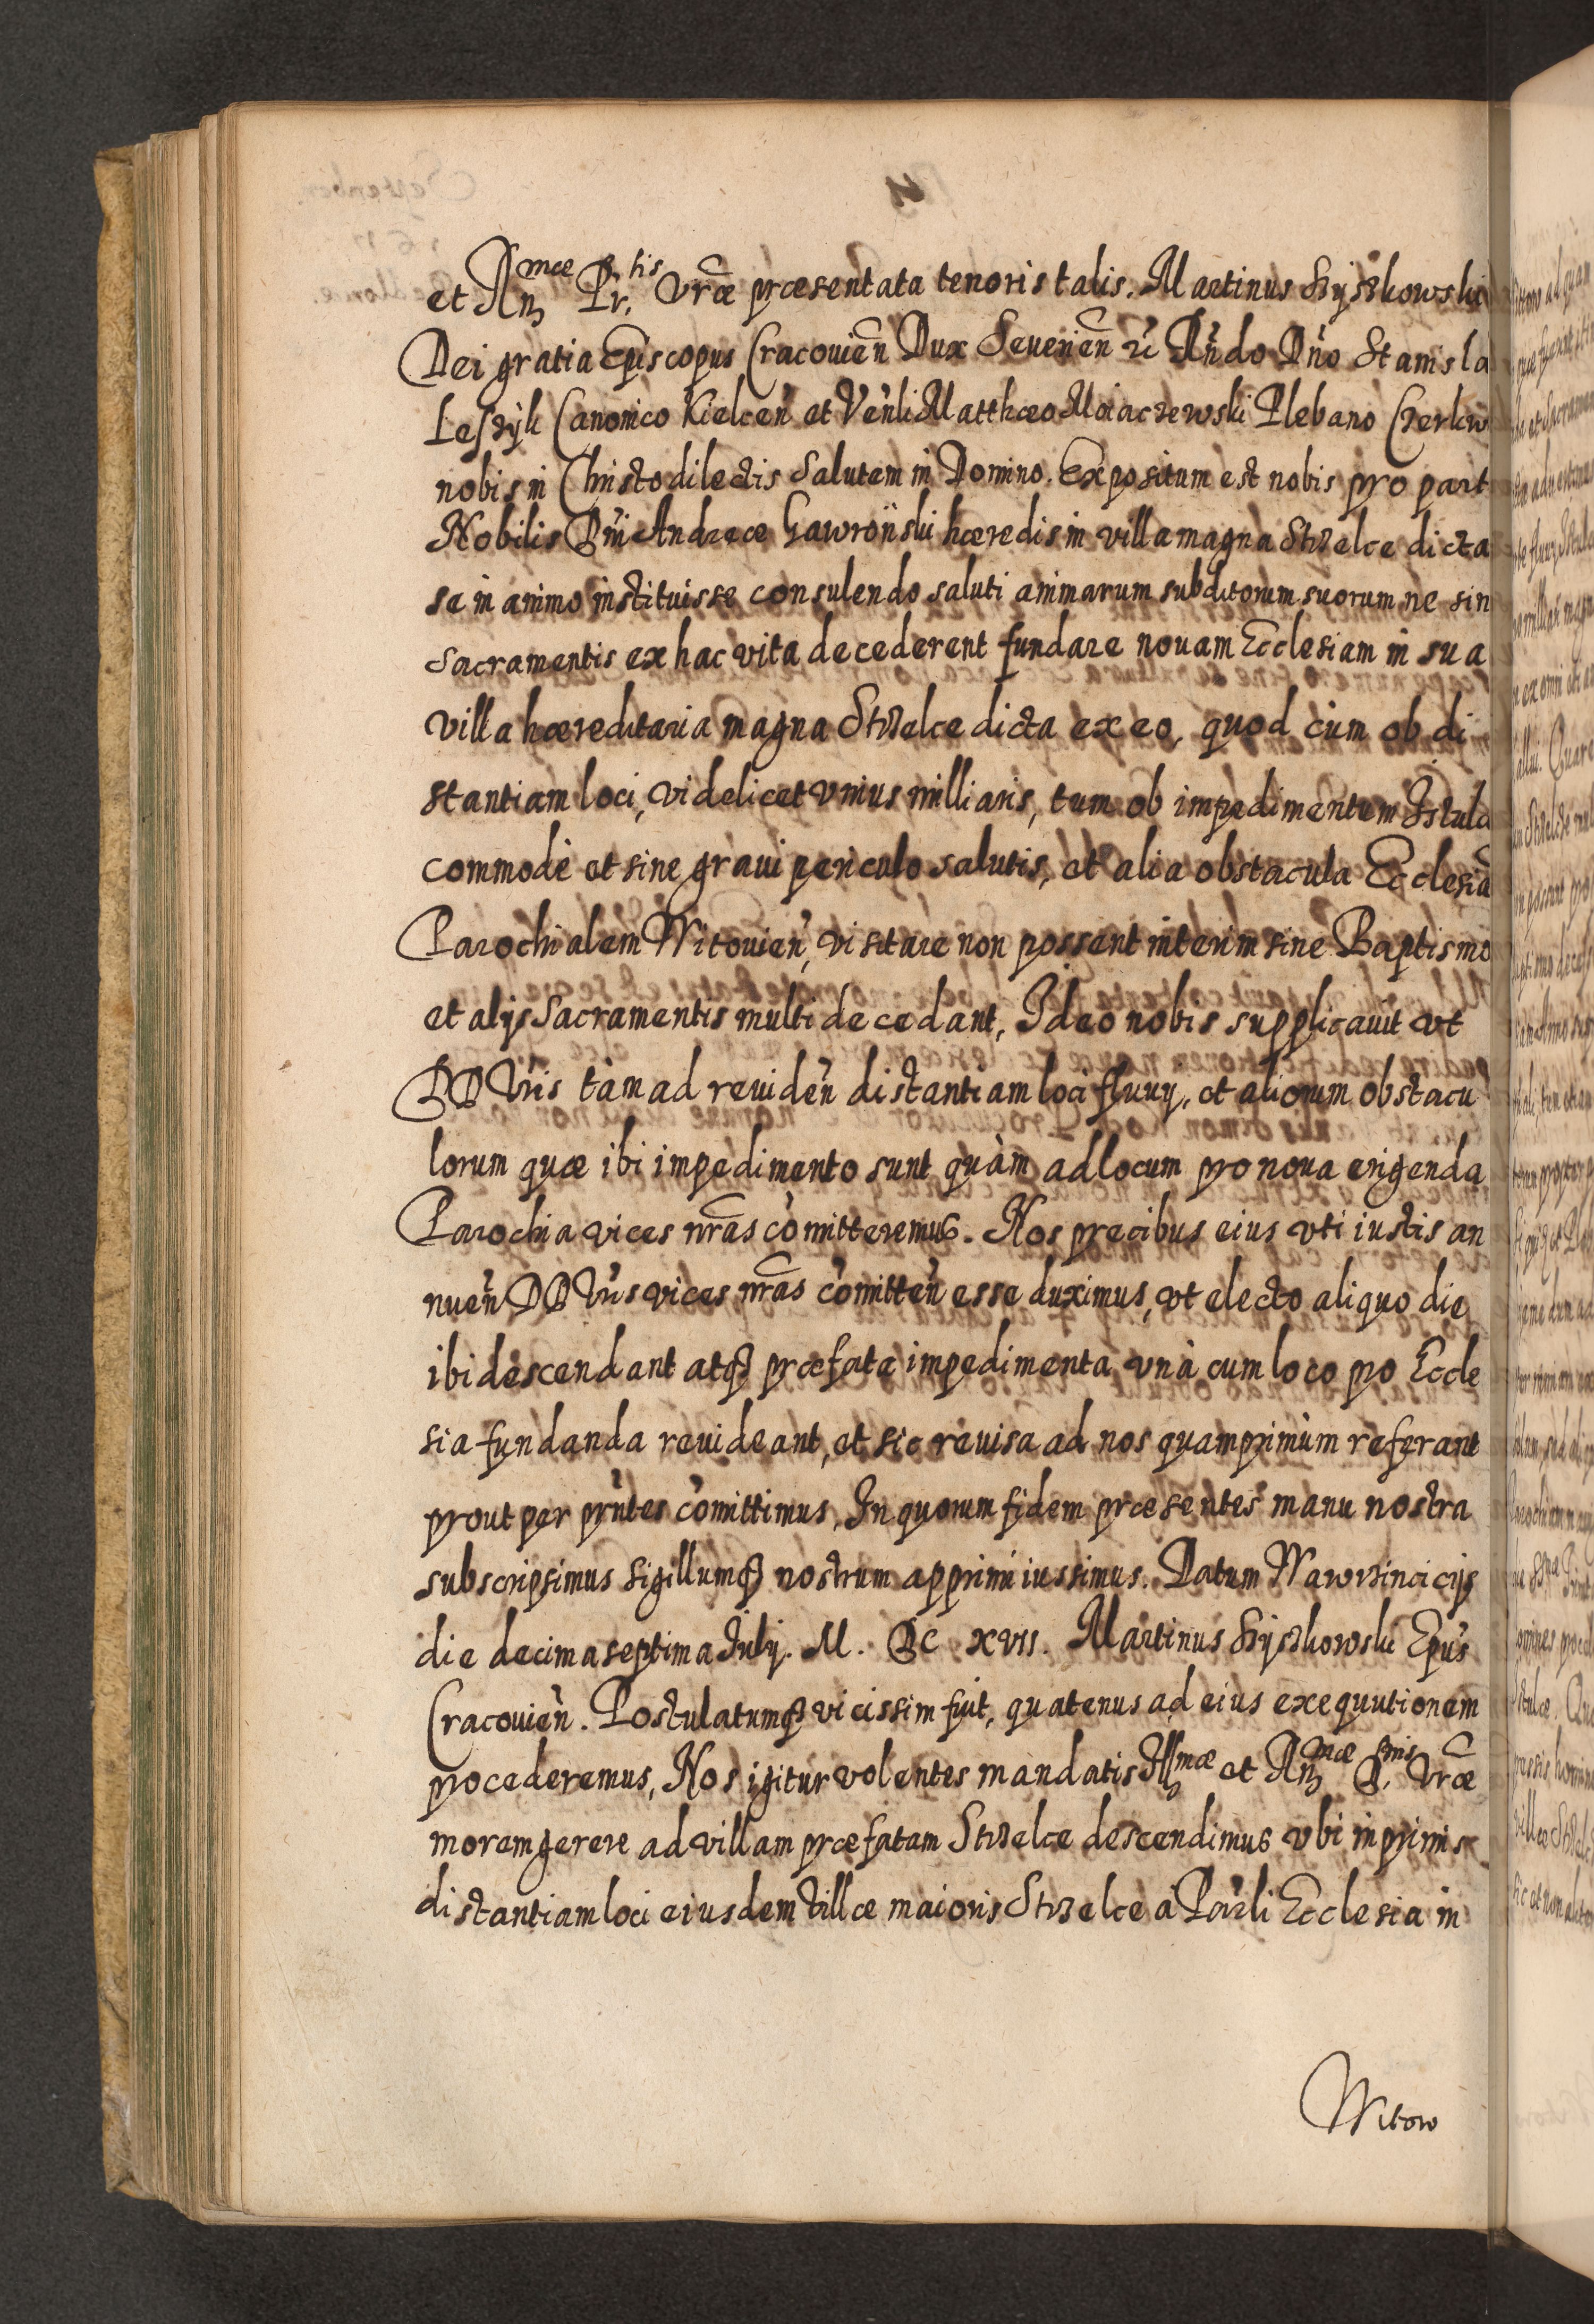 et Rndmae Pr. tis Vrae praesentata tenoris talis. Martinus Szyszkowski
Dei gratia Episcopus Cracovien Dux Severien etc Rndo Dno Stanisla
Leszyk Canonico Kielcen et Venli Matthaeo Moiaczewski Plebano Czerkw
nobis in Christo dilectis Salutem in Domino. Expositum est nobis pro part
Nobilis Dni Andreae Gawroński haeredis in villa magna Strzelce dicta
se in animo instituisse consulendo saluti animarum subditorum suorum ne sin
Sacramentis ex hac vita decederent fundare novam Ecclesiam in sua
villa haereditaria magna Strzelce dicta ex eo, quod cùm ob di-
stantiam loci, videlicet vnius milliaris, tum ob impedimentum Istula
commodè et sine graui periculo salutis, et alia obstacula Ecclesiā
Parochialem Witouien, visitare non possent interim sine Baptismo
et alijs Sacramentis multi decedant, Ideo nobis supplicauit vt
DD Vris tàm ad reuiden distantiam loci fluuy, et aliorum obstacu
lorum quae ibi impedimento sunt quàm ad locum pro noua erigenda
Parochia vices nras comitteremus. Nos precibus eius vti iustis an
nuen DD Vris vices nras comitten esse duximus, vt electo aliquo die
ibi descendant atq praefata impedimenta vnà cum loco pro Eccle
sia fundanda reuideant, et sic reuisa ad nos quamprimùm referant
prout per pntes comittimus, In quorum fidem praesentes manu nostra
subscripsimus Sigillumq nostrum apprimi iussimus. Datum Wawrzinczicijs
die decima septima Iulij. M. DC XVII. Martinus Szyszkowski Epus
Cracouien. Postulatumq vicissim fuit, quatenus ad eius exequutionem
procederemus, Nos igitur volentes mandatis Illmae et Rndmae D. onis Vrae
morem gerere ad villam praefatam Strzelce descendimus vbi inprimis
distantiam loci eiusdem Villae maioris Strzelce à Parli Ecclesia in
Witow